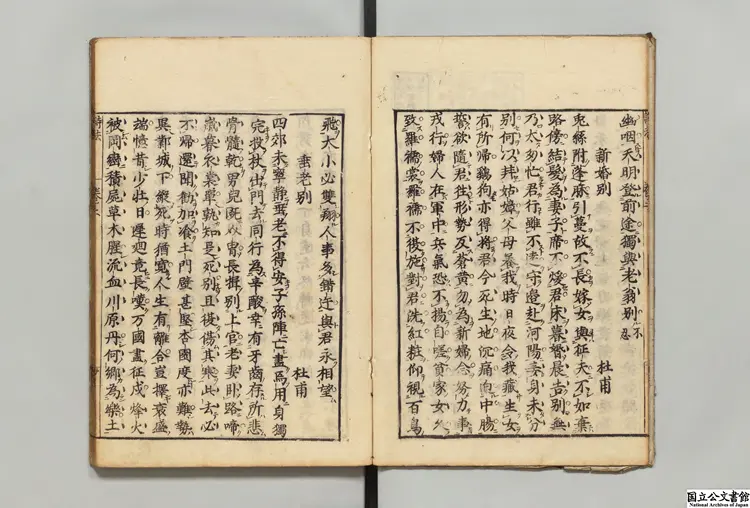 幽咽天明登前途獨與老翁別
新婚別　杜甫
兎絲附蓬麻引蔓故不長嫁女與征夫不如棄
路傍結髮為妻子席不煖君床暮婚晨告別無
乃太匆忙君行雖不遠守邊赴河陽妾身未分
別何以拜姑嫜父母養我時日夜令我藏生女
有所歸鷄狗亦得將君今死生地沉痛迫中腸
誓欲隨君往形勢反蒼黃勿為新婚念努力事
戎行婦人在軍中兵氣恐不揚自嗟貧家女久
致羅襦裳羅襦不復施對君洗紅粧仰視百鳥
飛大小必雙翔人事多錯迕與君永相望
垂老別　杜甫
四郊未寧靜垂老不得安子孫陣亡盡焉用身獨
完投杖出門去同行為辛酸幸有牙齒存所悲
骨髓乾男兒既介冑長揖別上官老妻臥路啼
歲暮衣裳單孰知是死別且復傷其寒此去必
不歸還聞勸加飡土門壁甚堅杏園度亦難勢
異鄴城下縱死時猶寬人生有離合豈擇衰盛
端憶昔少壮日遲廻竟長嘆万國盡征戍烽火
被岡巒積屍草木腥流血川原丹何鄉為樂土
国立公文書館
National Archives of Japan